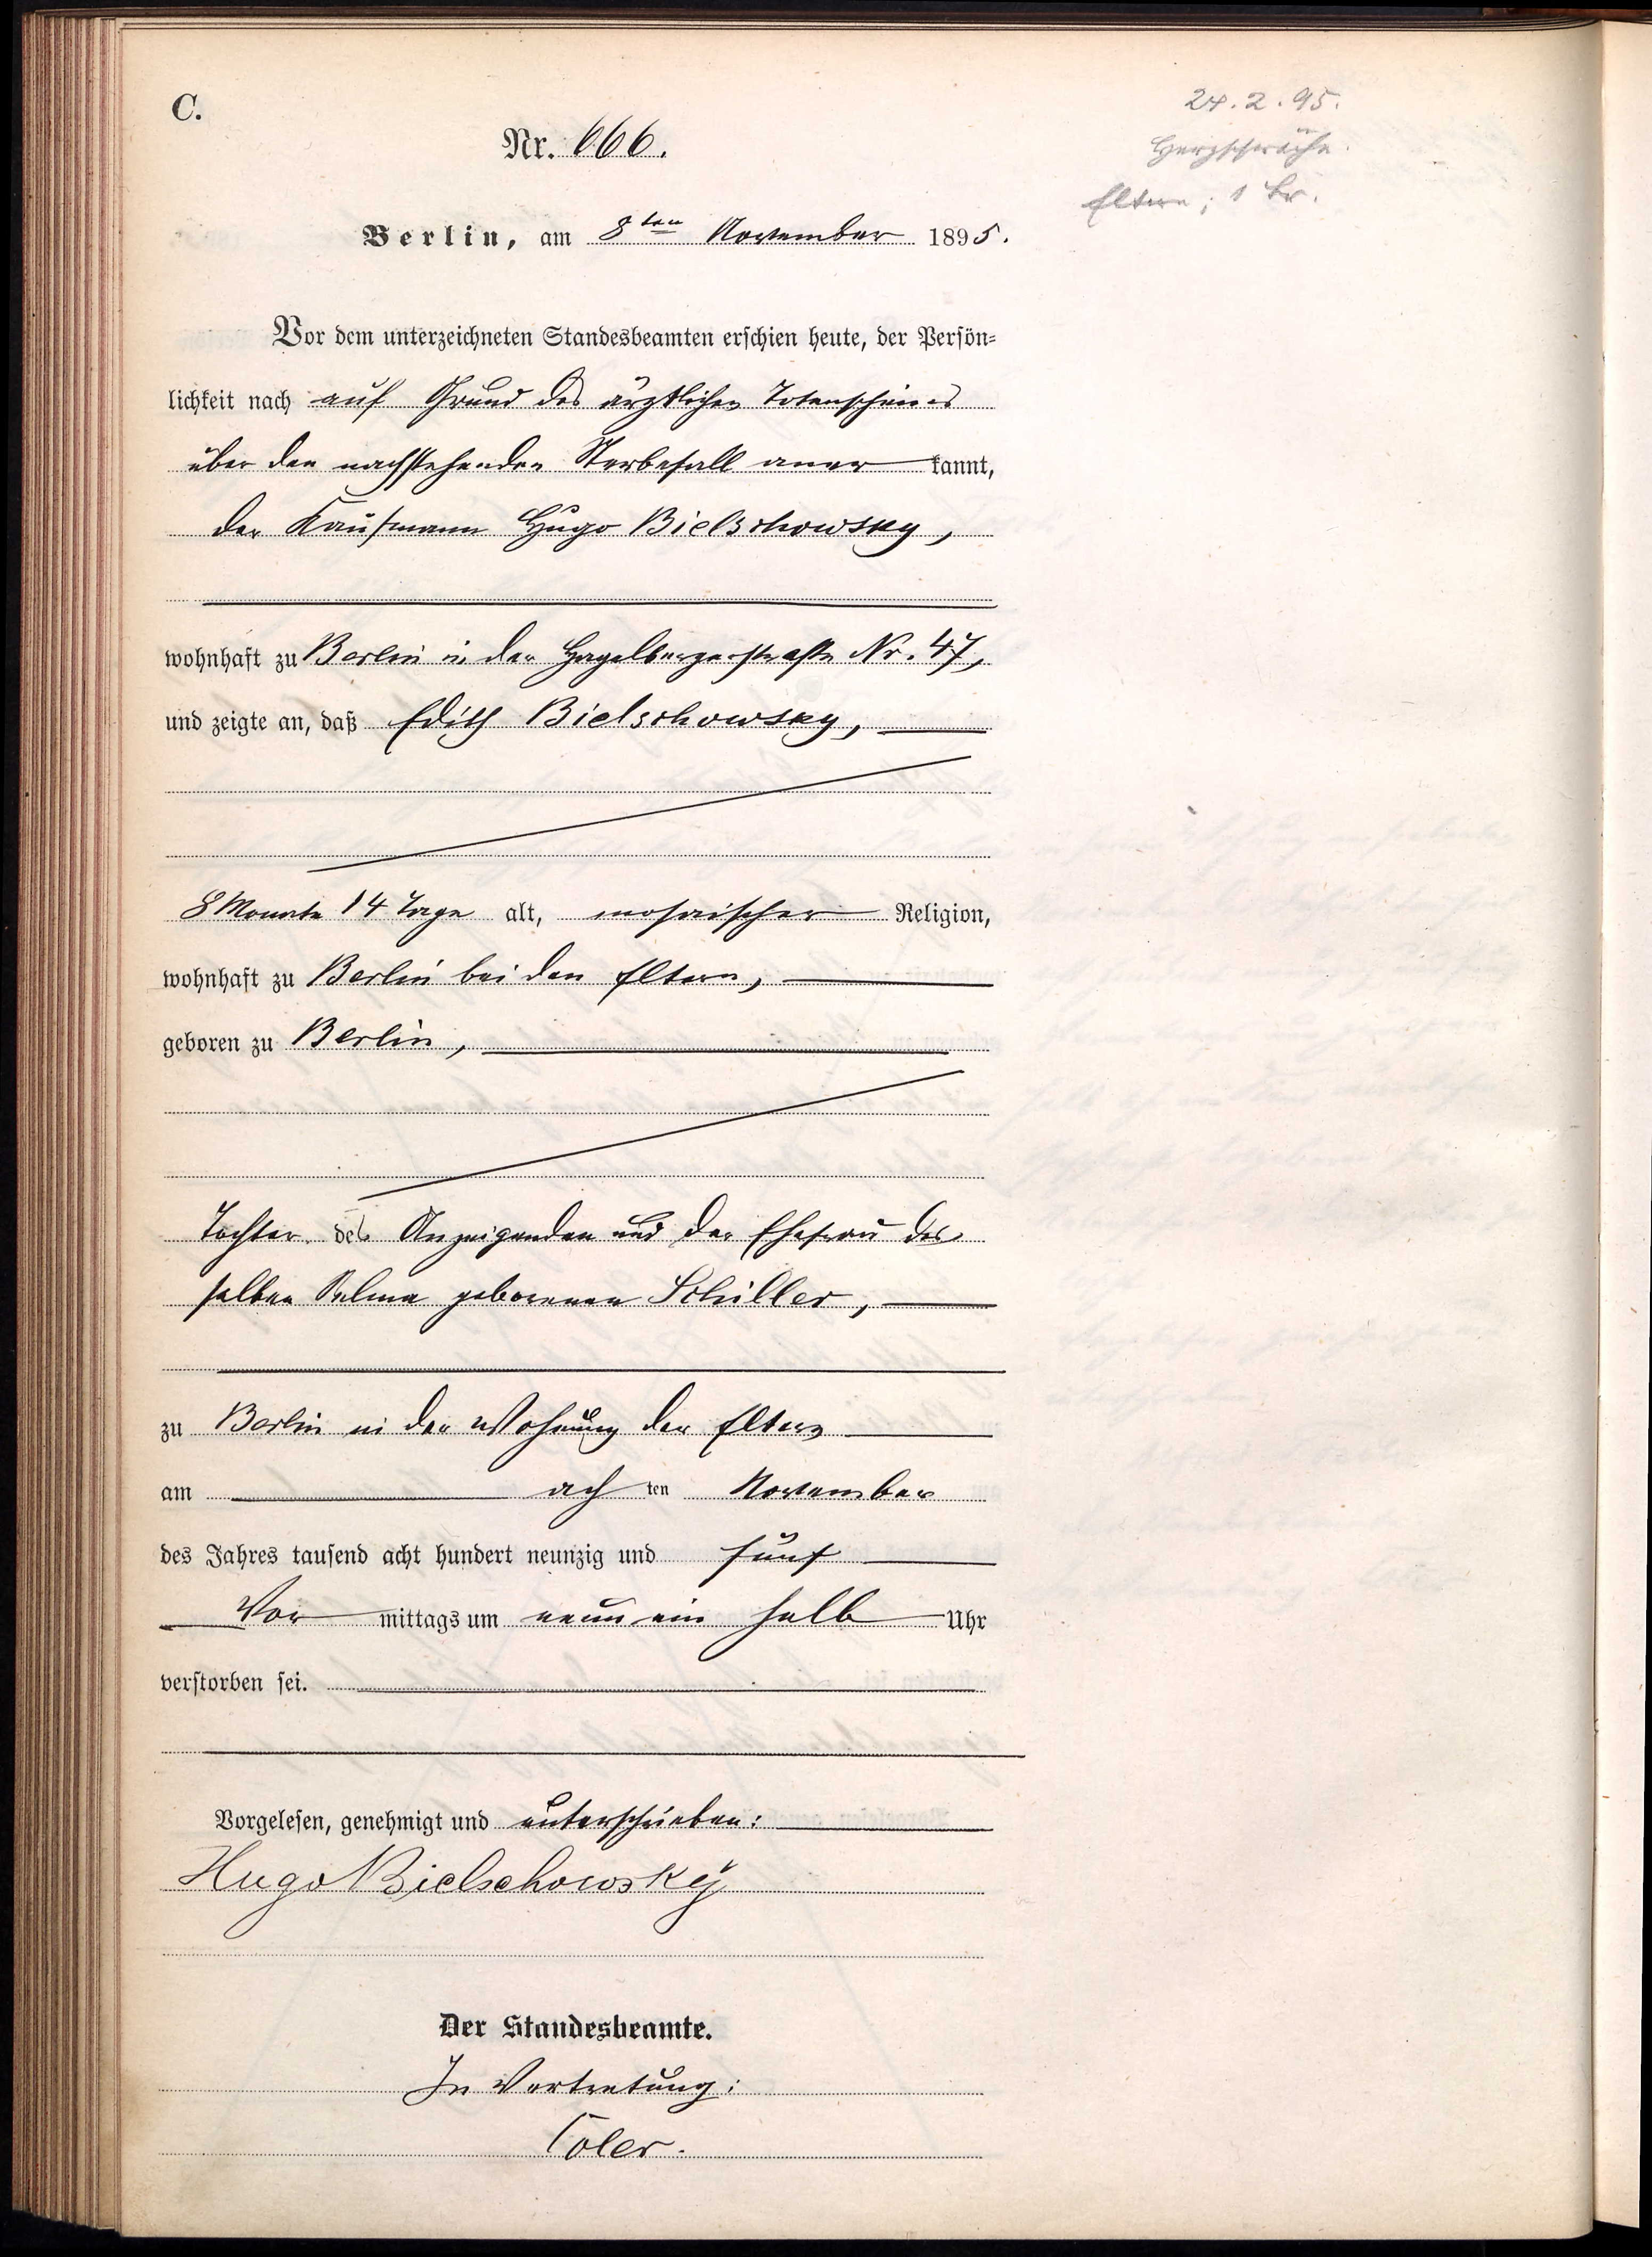 C.
24.2.95.
Herzschwäche.
Eltern; 1 Br.
Nr. 666.
Berlin, am 8ten November 1895.
Vor dem unterzeichneten Standesbeamten erschien heute, der Persön-
lichkeit nach auf Grund des ärztlichen Totenscheines
über den nachstehenden Sterbefall aner kannt,
der Kaufmann Hugo Bielschowsky,
wohnhaft zu Berlin in der Hagelbergerstraße Nr. 47,
und zeigte an, daß Edith Bielschowsky,
8 Monate 14 Tage alt, mosaischer Religion,
wohnhaft zu Berlin bei den Eltern,
geboren zu Berlin,
Tochter des Anzeigenden und der Ehefrau des
selben Selma geborenen Schiller,
zu Berlin in der Wohnung der Eltern
am ach ten November
des Jahres tausend acht hundert neunzig und fünf
Vor mittags um neun ein halb Uhr
verstorben sei.
Vorgelesen, genehmigt und unterschrieben:
Hugo Bielschowsky
Der Standesbeamte.
In Vertretung:
Coler.